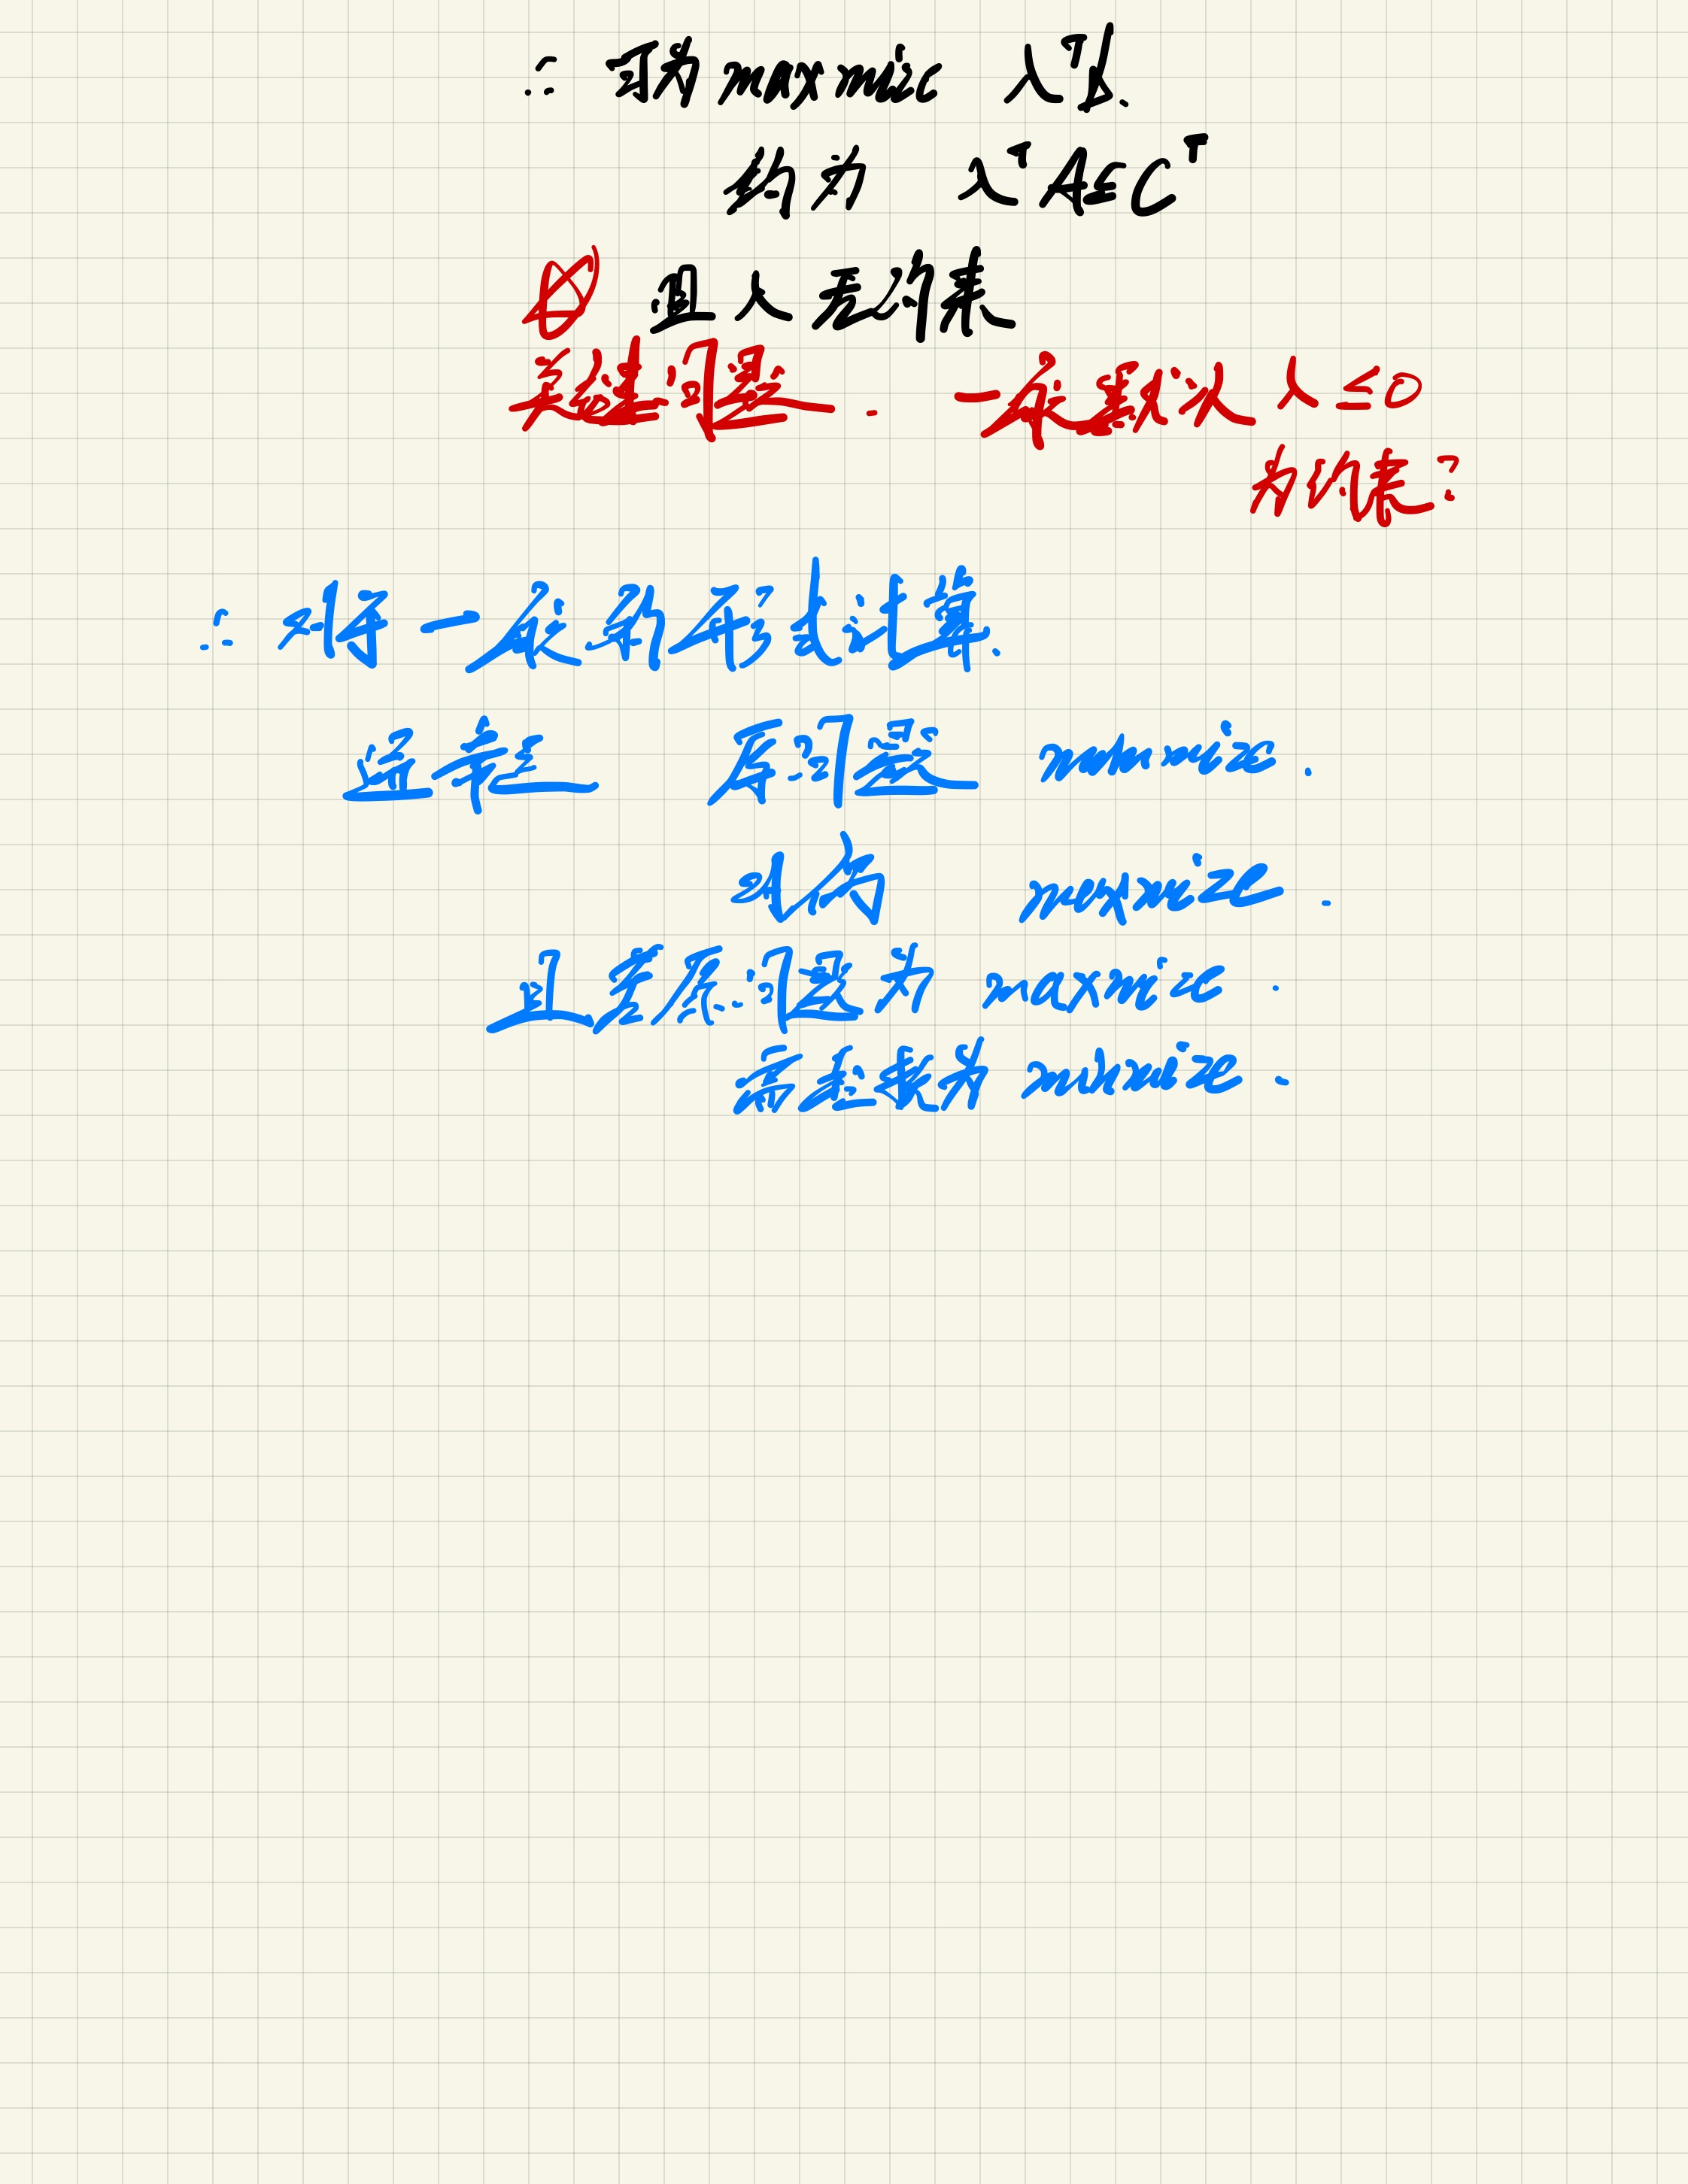 ∴ 可为 maxmize λᵀb.
约为 λᵀA≤Cᵀ
且 λ 无约束
关键问题. 一般默认 λ≤0
为约束?
∴ 对于一般和形式计算.
通常是 原问题 minmize.
对偶 maxmize.
且若原问题为 maxmize.
需要转为 minmize.